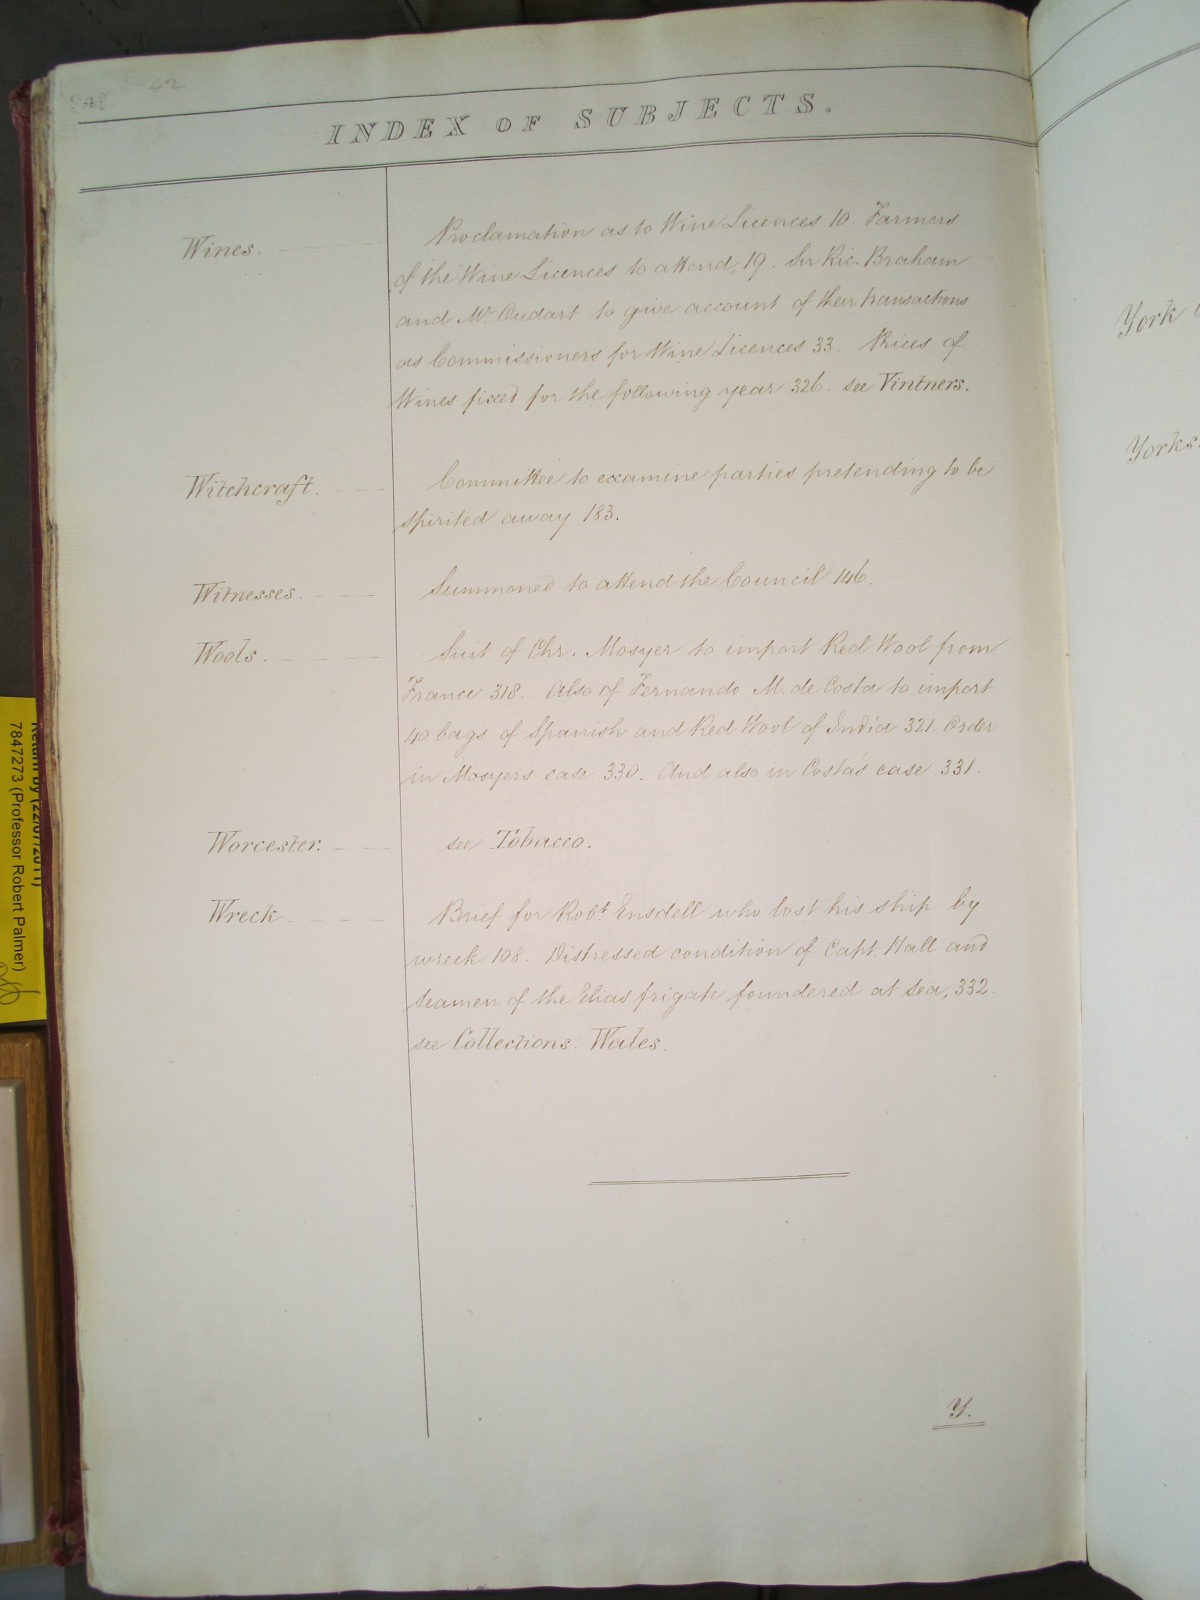 42
INDEX OF SUBJECTS.
Wines.
Proclamation as to Wine Licences 10. Farmers
of the Wine Licences to attend, 19. Sir Ric. Braham
and Mr. Oudart to give account of their transactions
as Commissioners for Wine Licences 33. Prices of
Wines fixed for the following year 326. see Vintners.
Witchcraft.
Committee to examine parties pretending to be
spirited away 183.
Witnesses.
Summoned to attend the Council 146.
Wools.
Suit of Chr. Mosyer to import Red Wool from
France 318. Also of Fernando M. de Costa to import
40 bags of Spanish and Red Wool of India 321. Order
in Mosyers case 330. And also in Costa's case 331.
Worcester.
see Tobacco.
Wreck.
Brief for Robt. Ensdell who lost his ship by
wreck 108. Distressed condition of Capt. Hall and
Seamen of the Elias frigate foundered at sea, 332.
see Collections. Wales.
Y.
York
Yorks
Return by (22/07/2011)
7847273 (Professor Robert Palmer)